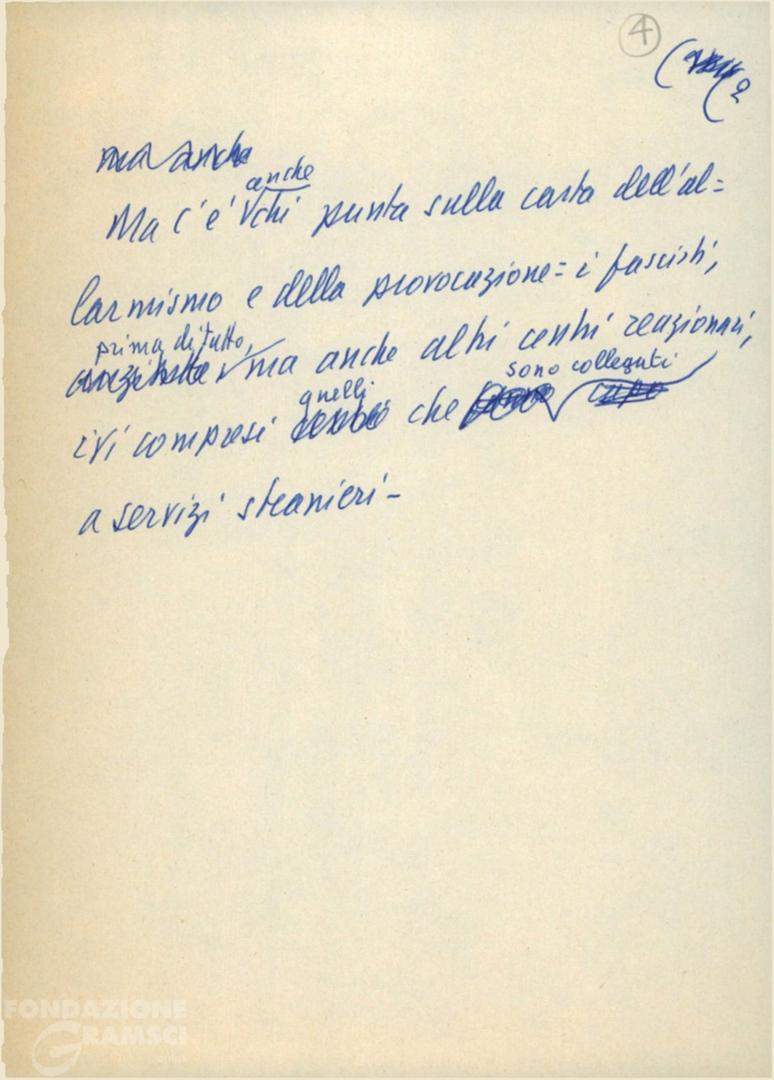 4
2
ma anche
anche
Ma c'è chi punta sulla carta dell'al=
larmismo e della provocazione= i fascisti,
prima di tutto,
ma anche altri centri reazionari,
quelli sono collegati
ivi compresi che capo
a servizi stranieri-
FONDAZIONE
GRAMSCI